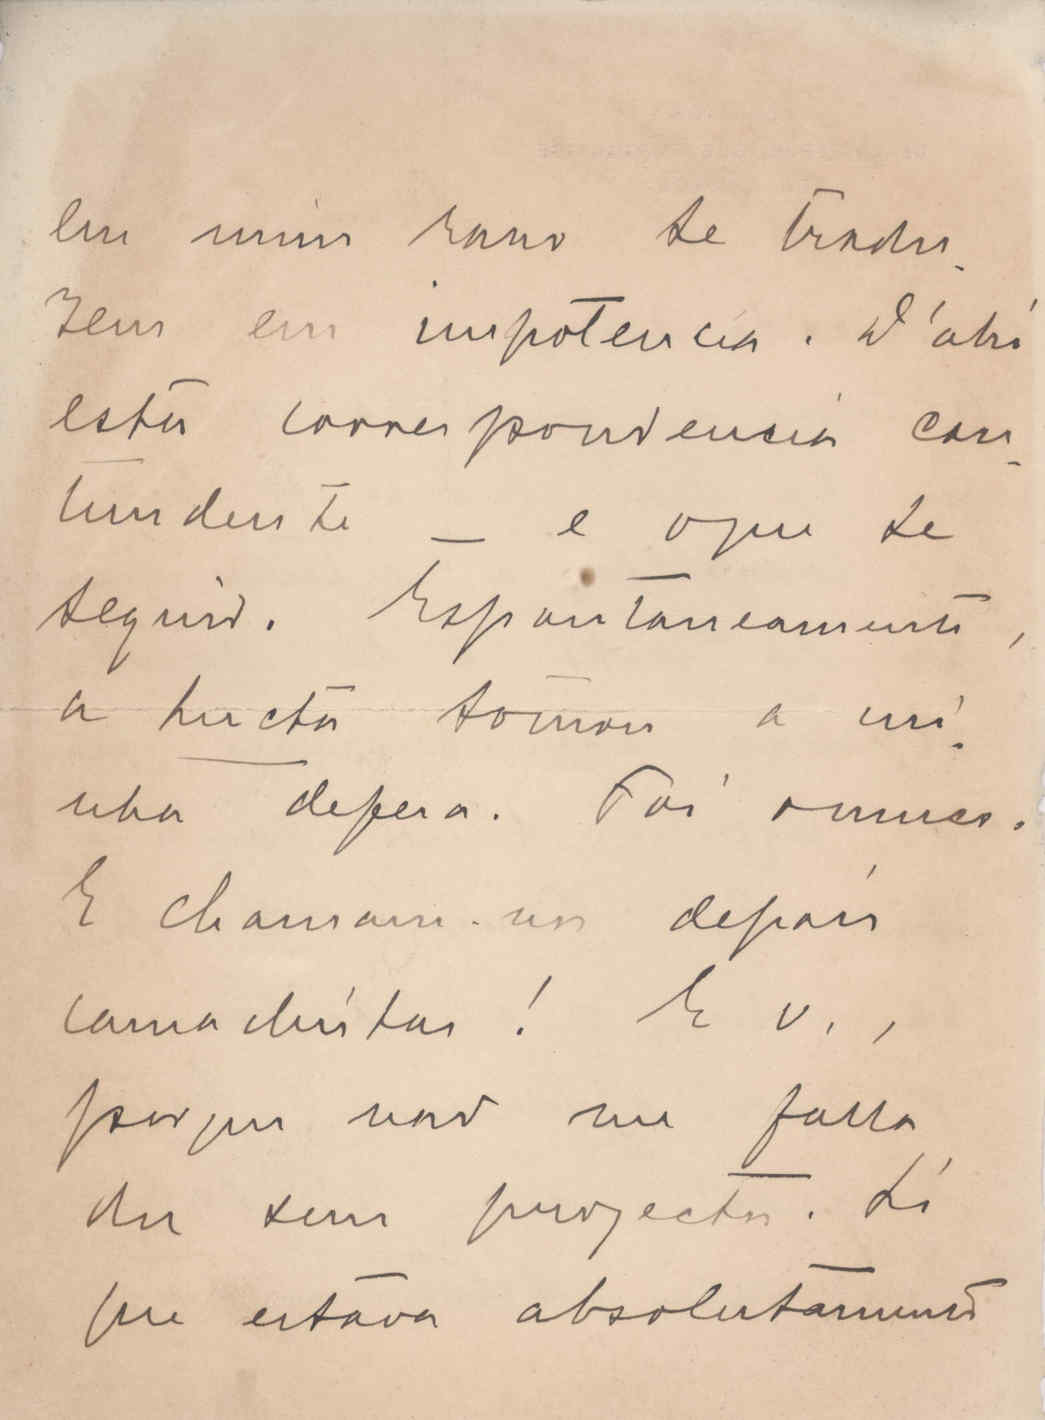 em mim raro se tradu-
zem em impotencia. D'ahi
esta correspondencia con-
tundente — e o que se
seguio. Espontaneamente,
a lucta tomou a mi-
nha defera. Foi
E chamam-nos depois
camachistas! E v.,
porque não me falla
do seu projecto. Li
que estava absolutamente